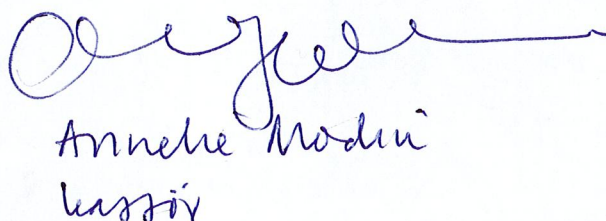 Anneke Modin
kassör